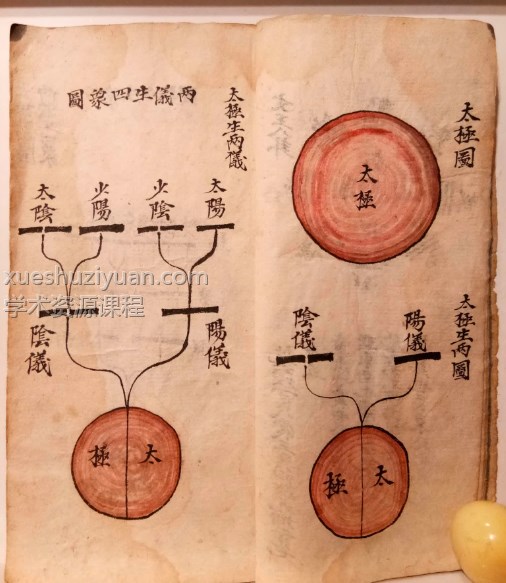 太極圖
太極
太極生兩圖
陽儀
陰儀
太極
太極生兩儀
兩儀生四象圖
太陽
少陰
少陽
太陰
陽儀
陰儀
太極
xueshuziyuan.com
学术资源课程